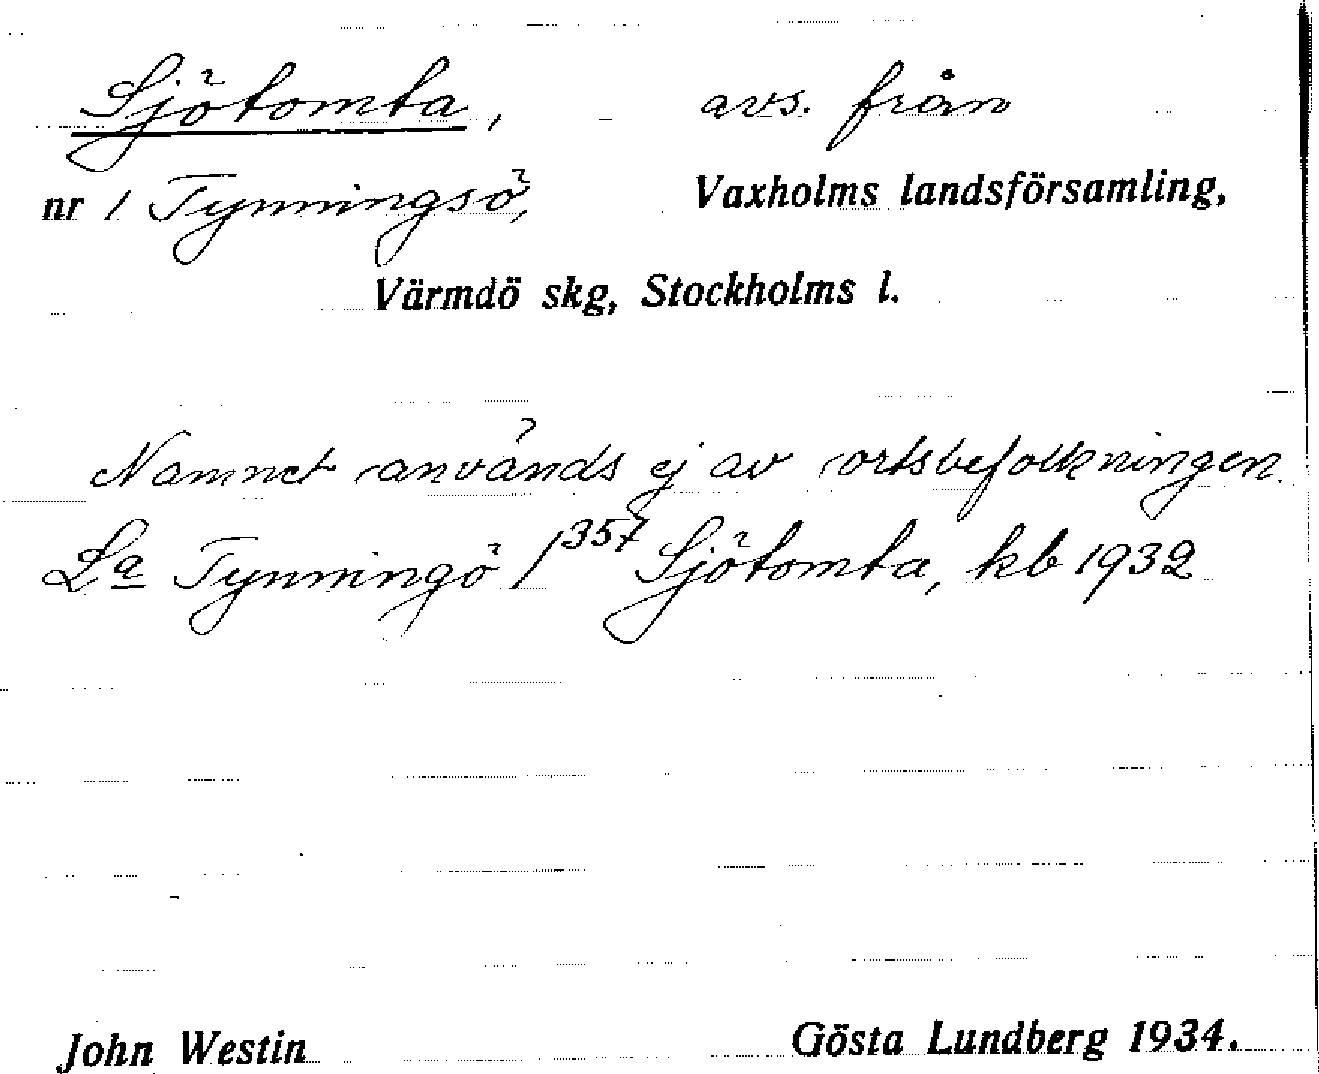 Sjötomta, avs. från
nr 1 Tynningsö, Vaxholms landsförsamling,
Värmdö skg, Stockholms l.
Namnet används ej av ortsbefolkningen.
La Tynningö 1357 Sjötomta, kb 1932
John Westin Gösta Lundberg 1934.